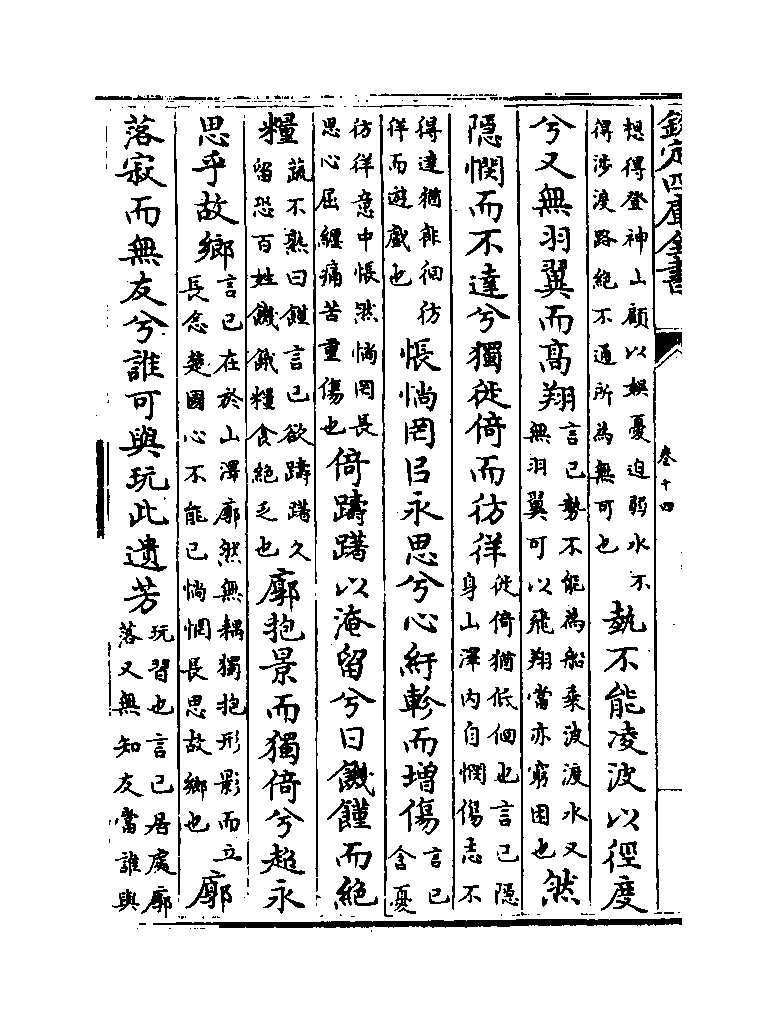 欽定四庫全書
卷十四
想得登神山顧以娛憂迫弱水不
得涉渡路絶不通所為無可也
埶不能凌波以徑度
兮又無羽翼而髙翔
言己勢不能為船乗波渡水又
無羽翼可以飛翔當亦窮困也
然
隱憫而不達兮獨徙倚而彷徉
徙倚猶低佪也言己隱
身山澤内自憫傷志不
得達猶徘徊彷
徉而遊戲也
悵惝罔㠯永思兮心紆軫而增傷
言己
含憂
彷徉意中悵然惝罔長
思心屈纒痛苦重傷也
倚躊躇以淹留兮日饑饉而絶
糧
蔬不熟曰饉言己欲躊躇久
留恐百姓饑餓糧食絶乏也
廓抱景而獨倚兮超永
思乎故鄉
言己在於山澤廓然無耦獨抱形影而立
長念楚國心不能已惝惘長思故鄉也
廓
落寂而無友兮誰可與玩此遺芳
玩習也言己居處廓
落又無知友當誰與